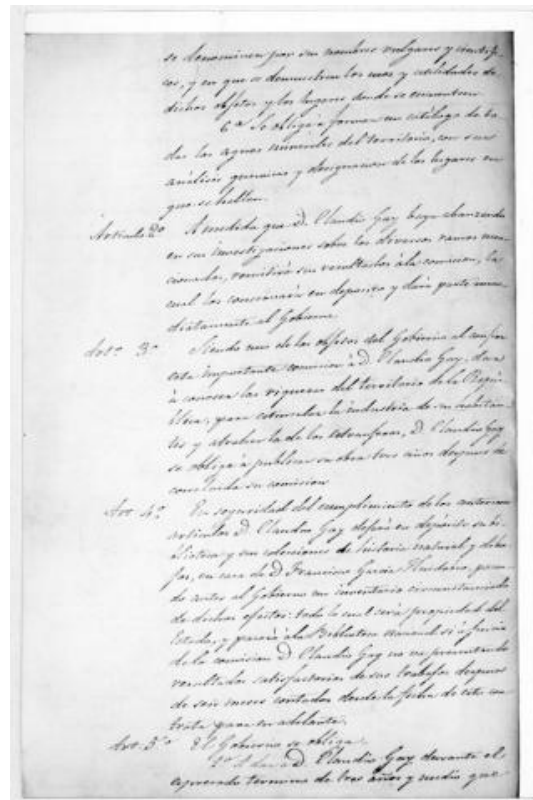 se denominen por sus nombres vulgares y cientifi-
cos, y en que se demuestren los usos y utilidades de
dichos objetos y los lugares donde se encuentren
6ª Se obliga a formar un catálogo de to-
das las aguas minerales del territorio, con sus
análisis químicos y designacion de los lugares en
que se hallen.
Articulo 2º A medida que D. Claudio Gay baya abanzando
en sus investigaciones sobre los diversos ramos men-
cionados, remitirá sus resultados á la comision, la
cual los conservará en deposito y dará parte inme-
diatamente al Gobierno.
Artº 3º Siendo uno de los objetos del Gobierno al
esta importante comision á D. Claudio Gay, dar
á conocer las riquezas del territorio de la Repú-
blica, para estimular la industria de sus habitan-
tes y atraher la de los estranjeros, D. Claudio Gay
se obliga á publicar su obra tres años despues de
concluida su comision
Art 4º En seguridad del cumplimiento de los anteriores
articulos D. Claudio Gay dejará en depósito su bi-
blioteca y sus colecciones de historia natural y
en casa de D. Francisco Garcia Huidobro,
do antes al Gobierno un inventario circunstanciado
de dichos efectos: todo lo cual será propiedad del
Estado, y pasará á la Biblioteca nacional si á juicio
de la comision D. Claudio Gay no va presentando
resultados satisfactorios de sus trabajos despues
de seis meses contados desde la fecha de esta con-
trata para en adelante.
Art. 5º El Gobierno se obliga
1º A dar a D. Claudio Gay durante el
espresado termino de tres años y medio que